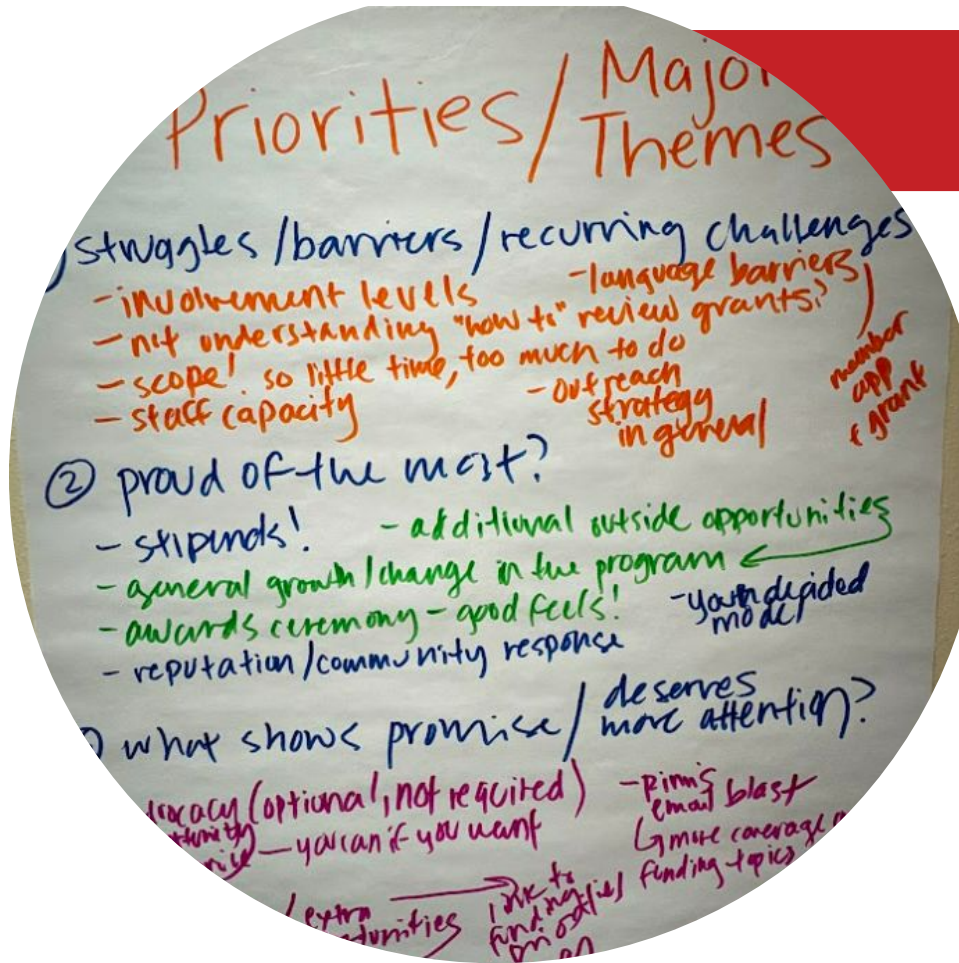 Priorities / Major Themes
struggles / barriers / recurring challenges
- involvement levels
- language barriers
- not understanding "how to" review grants?
- scope! so little time, too much to do
- staff capacity
- outreach strategy in general
member app & grant
② proud of the most?
- stipends!
- additional outside opportunities
- general growth / change in the program
- awards ceremony - good feels!
- youth decided model
- reputation / community response
what shows promise / deserves more attention?
(optional, not required)
- you can if you want
email blast
more coverage
funding topics
extra
link to funding priorities